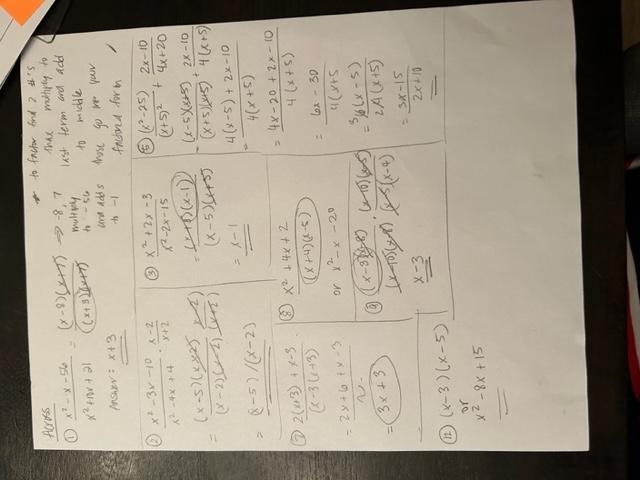 Across
① x² - x - 56 / x² + 10x + 21 = (x-8)(x+7) / (x+3)(x+7) → -8, 7 multiply to -56 and adds to -1
Answer: x+3
→ to factor find 2 #'s
that multiply to
last term and add
to middle
those go in your
factored form
② x² - 3x - 10 / x² - 4x + 4 · x-2 / x+2
= (x-5)(x+2) / (x-2)(x-2) · x-2 / (x+2)
= (x-5) / (x-2)
③ x² + 2x - 3 / x² - 2x - 15
= (x+3)(x-1) / (x-5)(x+3)
= x-1
⑤ (x²-25) / (x+5)² + 2x-10 / 4x+20
= (x-5)(x+5) / (x+5)(x+5) + 2x-10 / 4(x+5)
= 4(x-5) + 2x-10 / 4(x+5)
= 4x-20 + 2x-10 / 4(x+5)
= 6x-30 / 4(x+5
= 36(x-5) / 24(x+5)
= 3x-15 / 2x+10
⑦ 2(x+3) + x-3 / (x-3(x+3)
= 2x+6+x-3
= 3x+3
⑧ x² + 4x + 2 / (x+4)(x-5)
or x² - x - 20
⑨ (x-3)(x+8) / (x-10)(x+8) · (x-10)(x-5) / (x-5)(x-4)
x-3
⑫ (x-3)(x-5)
or
x² - 8x + 15